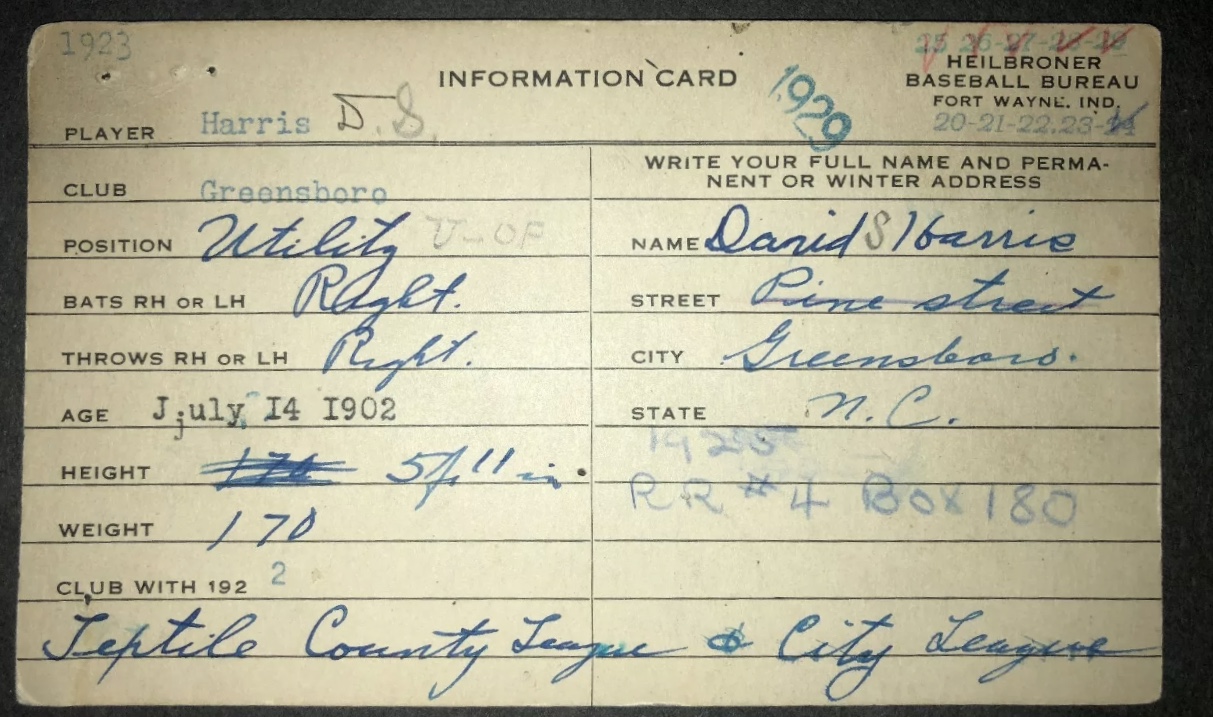 1923
25 26-27-28-29
INFORMATION CARD
1929
HEILBRONER
BASEBALL BUREAU
FORT WAYNE, IND.
20-21-22.23-24
PLAYER Harris D.S.
WRITE YOUR FULL NAME AND PERMA-
NENT OR WINTER ADDRESS
CLUB Greensboro
POSITION Utility U-OF
NAME David S Harris
BATS RH OR LH Right.
STREET Pine street
THROWS RH OR LH Right.
CITY Greensboro.
AGE J;uly 14 1902
STATE N.C.
1925
HEIGHT 174 5f 11 in.
RR #4 Box 180
WEIGHT 170
CLUB WITH 192 2
Teptile County League & City League